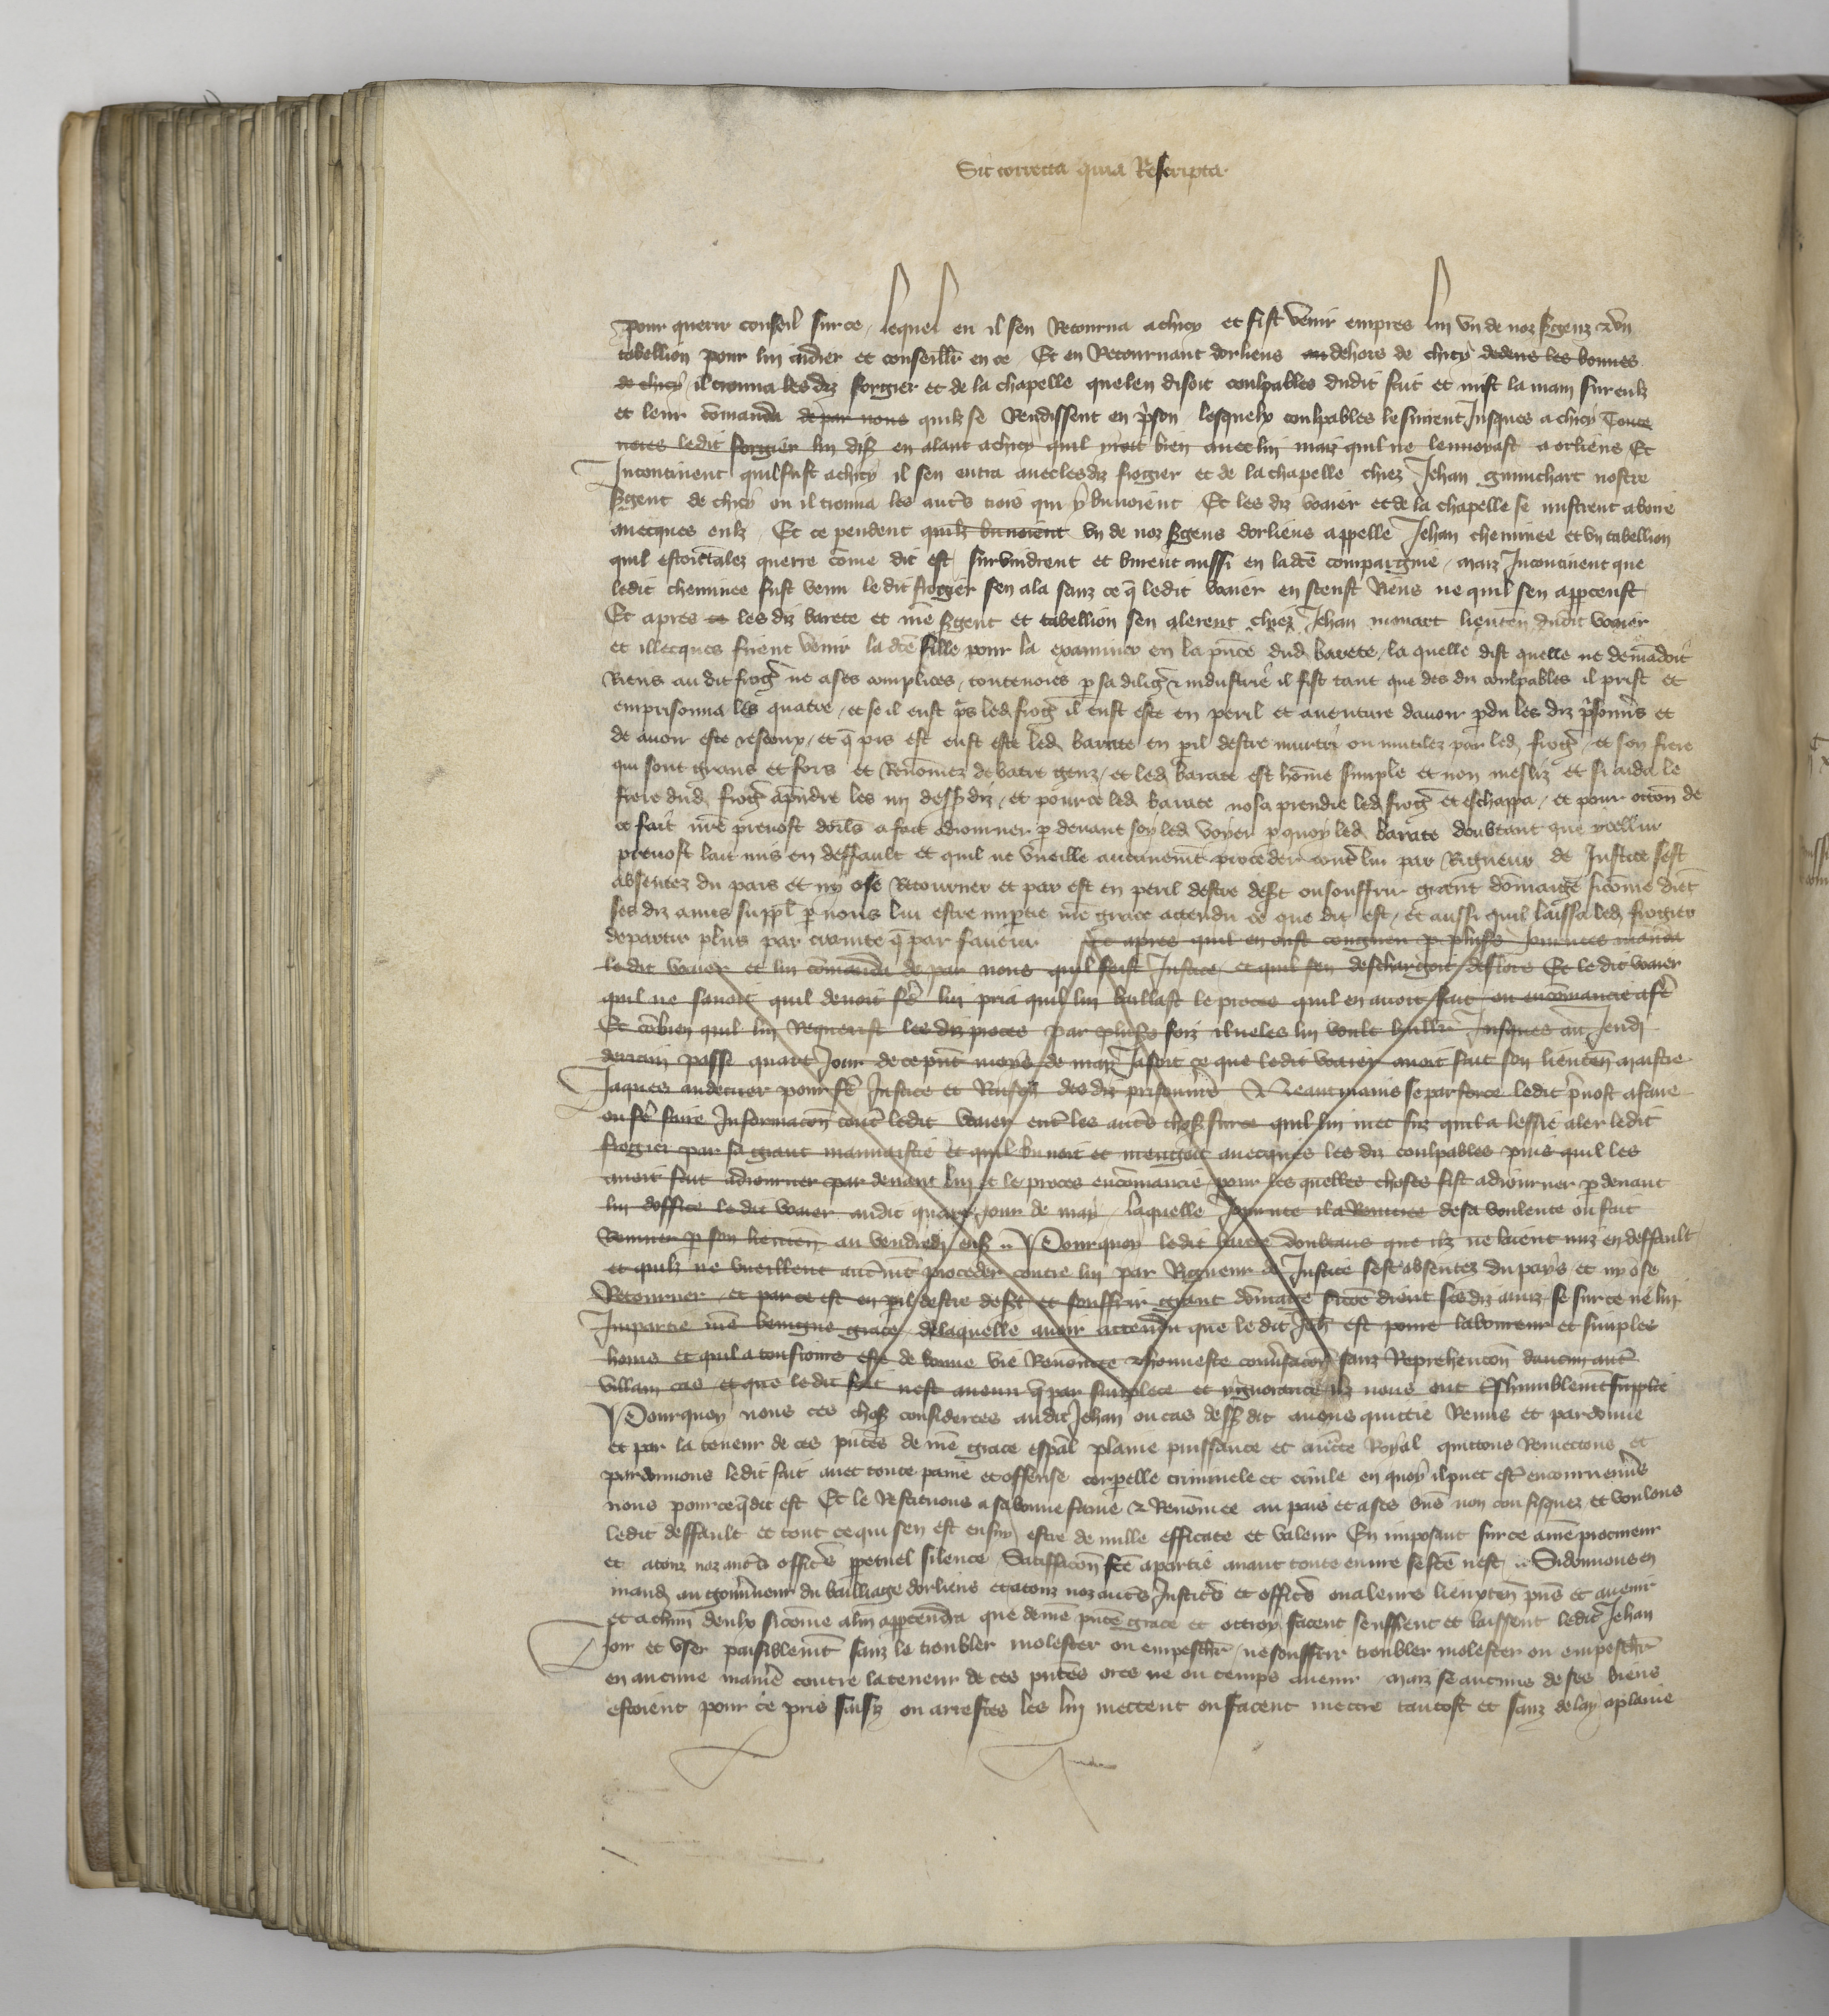 Sic correcta quia Rescripta
pour querir conseil sur ce lequel en il sen Retourna achicy et fist venir empres lui vn de noz sgenz & vn
tabellion pour lui aidier et conseillr en ce Et en Retournant dorliens au dehors de chicy dedens les bonnes
de chicy il trouua les diz forgier et de la chapelle que len disoit coulpables dudit fait et mist la main sur eulz
et leur comanda de par nous quilz se Rendissent en pson lesquelx coulpables le suirent Jusques a chicy Toute
uoies ledit forgier lui dist en alant achicy quil yroit bien auec lui maiz quil ne lenuoyast a orliens Et
Incontinent quil fust achicy il sen entra auec lesdiz frogier et de la chapelle chiez Jehan guiuchart nostre
sgent de chicy ou il trouua les autrs trois qui y buuoient Et les diz voaier et de la chapelle se mistrent aboire
auecques eulz Et ce pendent quilz buuoient vn de noz sgens dorliens appelle Jehan cheminee et vn tabellion
quil estoit alez querre come dit est suruindrent et burent aussi en ladce compaignie maiz Incontinent que
ledit cheminee fust venu ledit frogier sen ala sanz ce q ledit voaier en sceust Riens ne quil sen apperceust
Et apres ce les diz barete et nre sgent et tabellion sen alerent chiez Jehan monart lieuten dudit voaier
et illecques firent venir la dce fille pour la examiner en la pnce dud barete la quelle dist quelle ne demadoit
Riens au dit frog ne ases complices toutenoies p sa dilig & industrie il fist tant que des diz coulpables il prist et
emprisonna les quatre et se il eust ps led frog il eust este en peril et auenture dauoir pdu les diz psonnrs et
de auoir este rescoux et q pis est eust este led barate en pil destre murtri ou mutilez par led frog et son frere
qui sont grans et fors et Renomez de batre genz et led barate est home simple et non mesliz et si aida le
frere dud frog apndre les iiij dess diz et pource led barate nosa prendre led frog et eschappa et pour occon de
ce fait nre preuost dorlns a fait adiourner p deuant soy led voyer p quoy led barate doubtant que ycellui
preuost lait mis en deffault et quil ne vueille aucunemt proceder contr lui par Rigueur de Justice sest
absentez du pais et ny ose Retourner et par est en peril destre desht ou souffrir grant domaige sicome dient
ses diz amis suppl p nous lui estre imptie nre grace attendu ce que dit est et aussi quil laissa led frogier
departir plus par crainte q par faueur Et apres quil en oust congneu p plusrs Journees manda
ledit voaier et lui comanda de par nous quil feist Justice et quil sen deschargoit deslors Et ledit voaier
quil ne sauoit quil deuoit fe lui pria quil lui baillast le proces quil en auoit fait ou encomancie afe
Et combien quil lui Requeist les diz proces par plusrs foiz il ne les lui voult baillr Jusques au Jeudi
derrain passe quart Jour de ce pnt moys de may Jasoit ce que ledit voaier auoit fait son lieuten maistre
Jaques pour fe Justice et Raison des diz prisonnrs & Neantmains separ force ledit puost afaire
ou fe faire Informacon contr ledit voaier entr les autrs choses surce quil lui met suz quil a lessie aler ledit
frogier par sa grant mauuaistie et quil buuoit et mengoit auecques les diz coulpables puis quil les
auoit fait adiourner par deuant lui et le proces encomancie pour les quelles choses fist adiourner p deuant
lui doffice ledit voaier audit quart jour de may laquelle Journee il a Remise desa voulente ou fait
Remuer p son lieuten au vendredi ens Pourquoy ledit barete doubtans que ilz ne laient miz en deffault
et quilz ne vueillent autmt proceder contre lui par Rigueur de Justice sest absentez du pays et ny ose
Retourner et par ce est en pil destre desht et souffrir grant domaige sicoe dient ses diz amiz se sur ce ne lui
Impartie nre benigne grace de laquelle auoir attendu que le dit Jeh est poure laboureur et simples
homs et quil a tousiours este de bonne vie Renomee & honneste conusacon sanz Reprehencon daucun autr
villain cas et que ledit fait nest auenu q par simplece et ygnorance ilz nous ont tshumblemt supplie
Pourquoy nous ces choses considerees audit Jehan ou cas dess dit auons quittie Remis et pardonne
et par la teneur de ces pntes de nre grace espal plaine puissance et aucte Royal quittons Remettons et
pardonnons ledit fait auec toute paine et offense corpelle criminele et ciuile en quoy il puet estr encourru enurs
nous pource q dit est Et le Restituons a sa bonne fame & Renomee au pais et a ses bns non confisquez et voulons
ledit deffault et tout ce qui sen est ensuy estre de nulle efficace et valeur En imposant sur ce anre procureur
et atouz noz autrs officrs ppetuel silence Satiffacon fce apartie auant toute euure se fce nest Si donnons en
mand au gouuneur du bailliage dorliens et atouz noz autrs Justicrs et officrs ou aleurs lieuxten pns et auenir
et achun deulx sicome alui appartendra que de nre pnte grace et ottroy facent seuffrent et laissent ledit Jehan
Joir et vser paisiblemt sanz le troubler molester ou empeschr ne souffrir troubler molester ou empeschr
en aucune manre contre la teneur de ces pntes ores ne ou temps auenir maiz se aucuns de ses biens
estoient pour ce pris saisiz ou arrestes les lui mettent ou facent mettre tantost et sanz delay aplaine